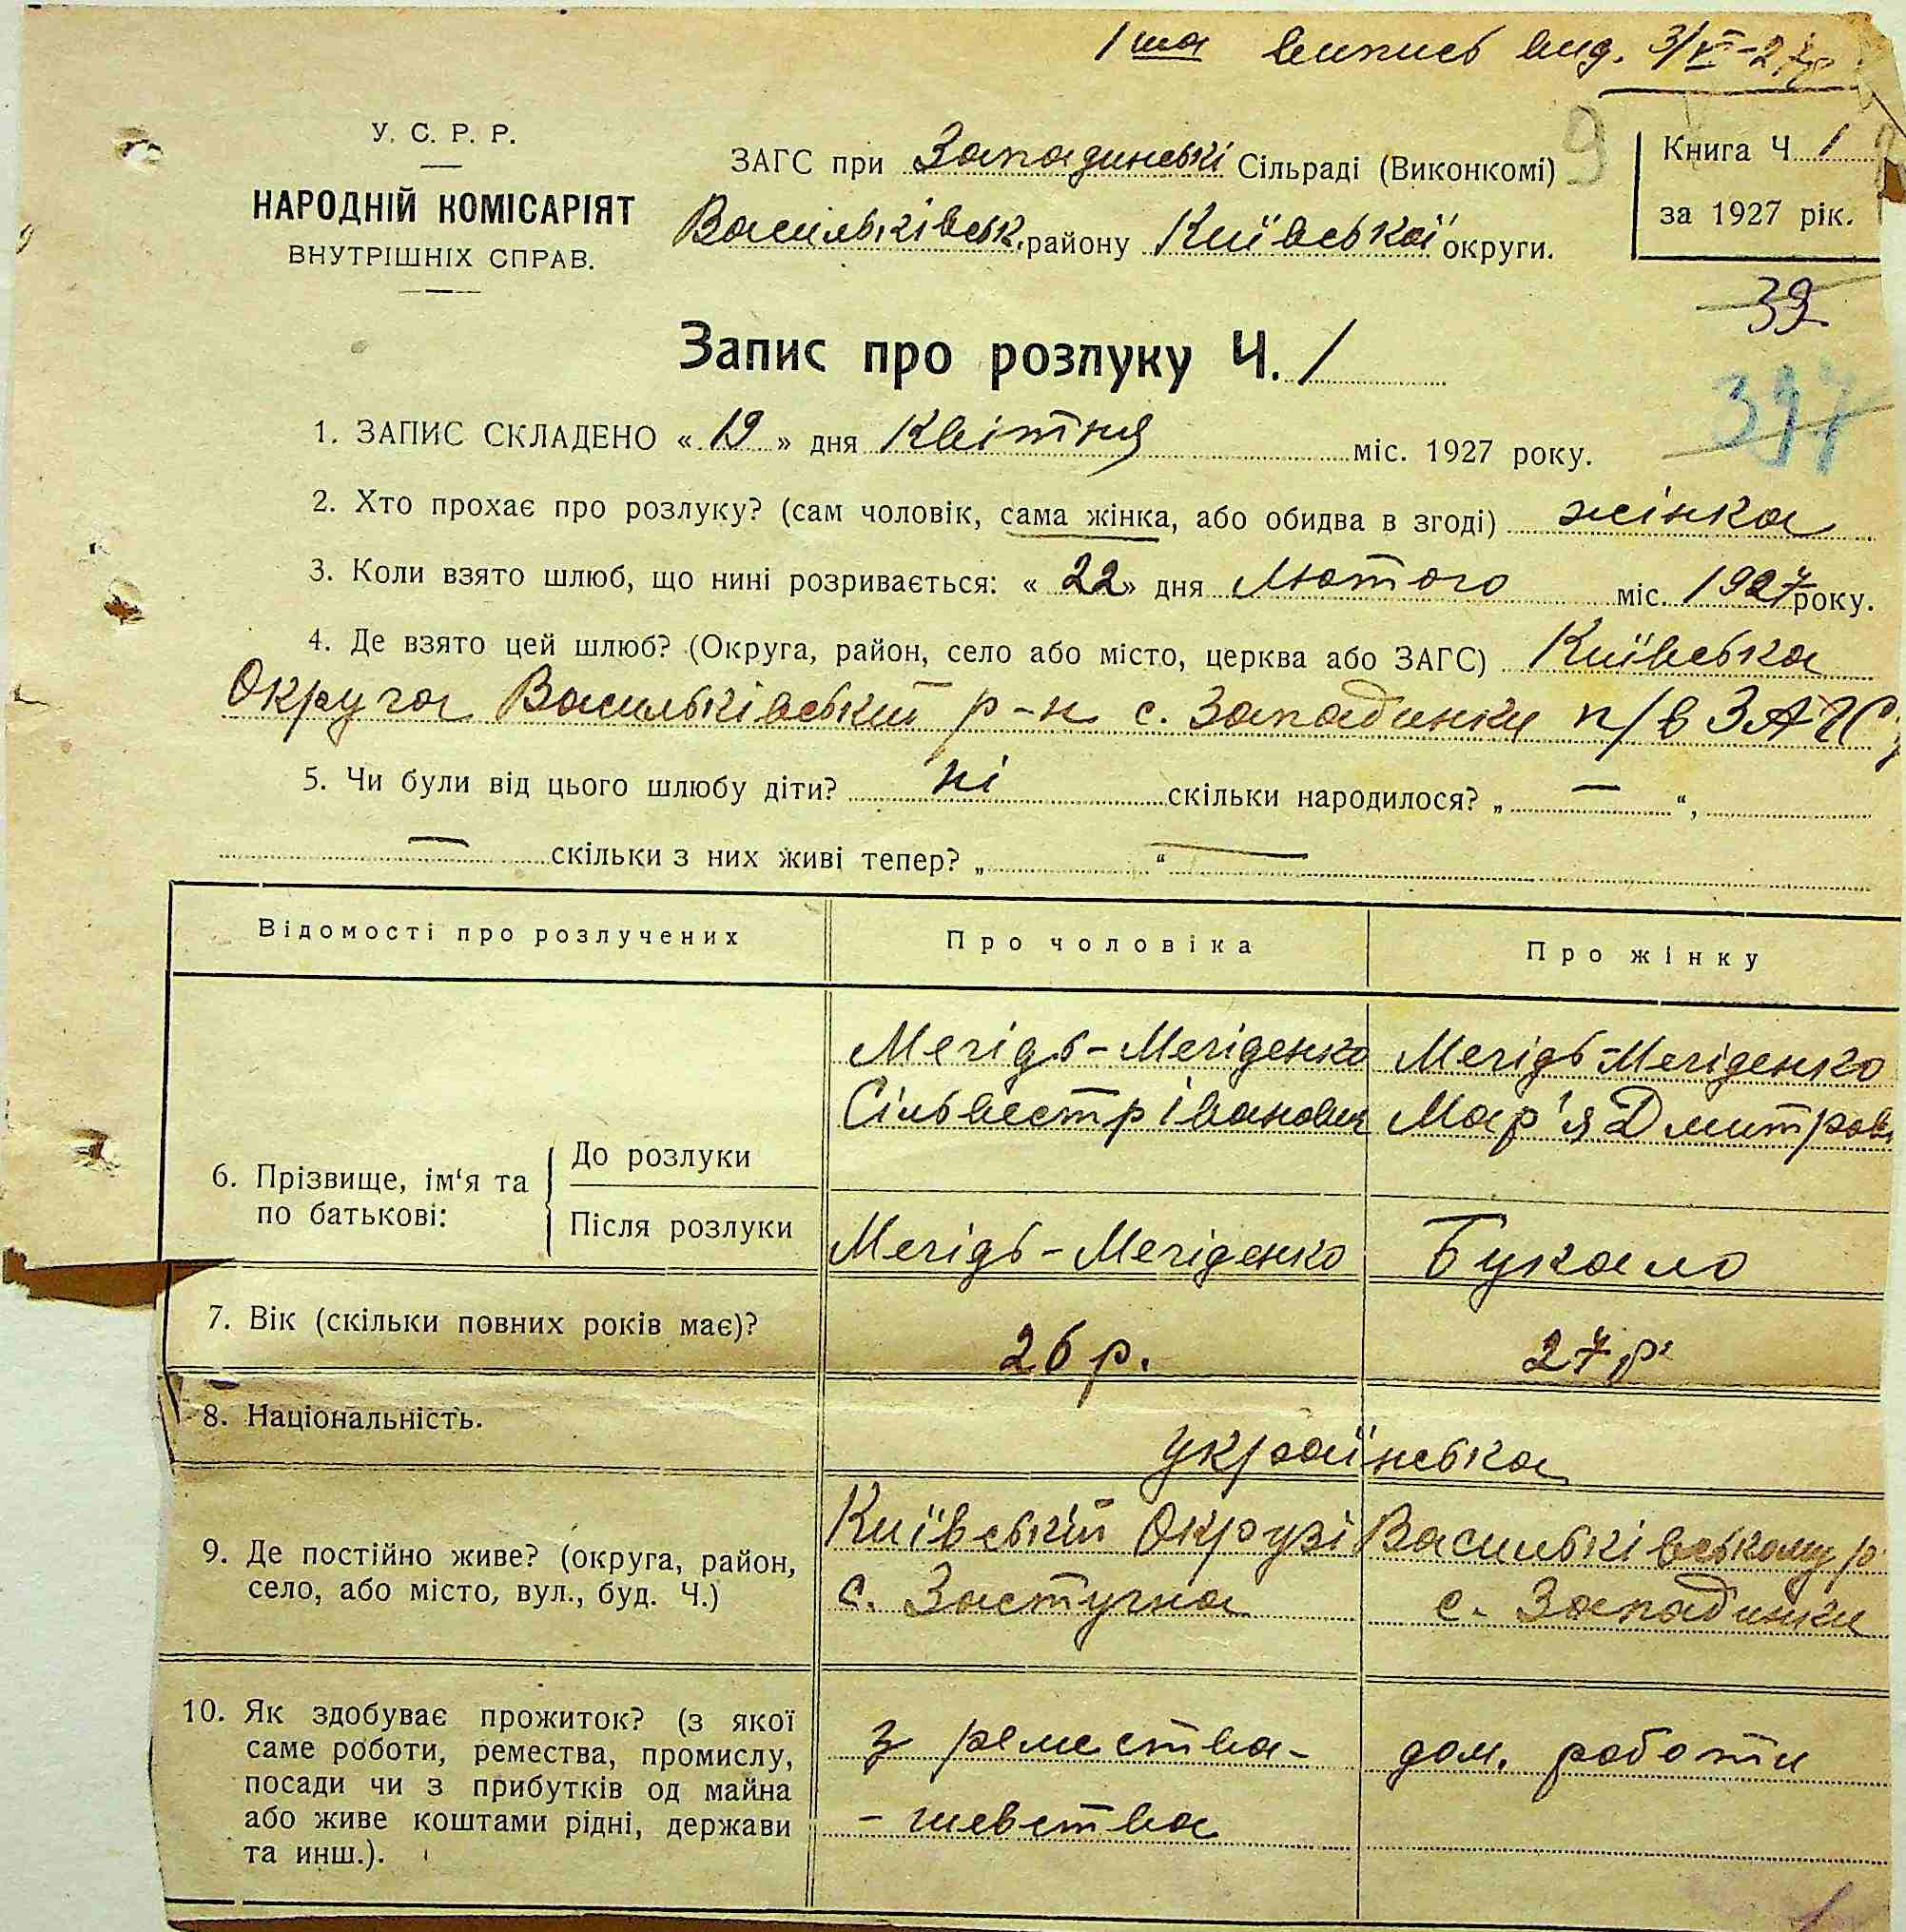 1 ша випись вид. 3/VI-27р
У. С. Р. Р.
НАРОДНІЙ КОМІСАРІЯТ
ВНУТРІШНІХ СПРАВ.
ЗАГС при Западинські Сільраді (Виконкомі)
9
Васильківськ. району Київської округи.
Книга Ч. 1
за 1927 рік.
39
397
Запис про розлуку Ч. 1
1. ЗАПИС СКЛАДЕНО « 19 » дня Квітня міс. 1927 року.
2. Хто прохає про розлуку? (сам чоловік, сама жінка, або обидва в згоді) жінка
3. Коли взято шлюб, що нині розривається: « 22 » дня Лютого міс. 1927 року.
4. Де взято цей шлюб? (Округа, район, село або місто, церква або ЗАГС) Київська
Округа Васильківський р-н с. Западинки п/в ЗАГС
5. Чи були від цього шлюбу діти? ні скільки народилося? „ — “,
— скільки з них живі тепер? „ “ —
Відомості про розлучених Про чоловіка Про жінку
6. Прізвище, ім'я та по батькові:
До розлуки
Мегідь-Мегіденко
Сільвестр Іванович
Мегідь-Мегіденко
Мар'я Дмитрові
Після розлуки
Мегідь-Мегіденко
Букало
7. Вік (скільки повних років має)? 26 р. 27 р.
8. Національність. українська
9. Де постійно живе? (округа, район,
село, або місто, вул., буд. Ч.)
Київській Окрузі Васильківському р.
с. Застугна с. Западинки
10. Як здобуває прожиток? (з якої
саме роботи, ремества, промислу,
посади чи з прибутків од майна
або живе коштами рідні, держави
та инш.).
з ремества-
- шевства
дом. роботи